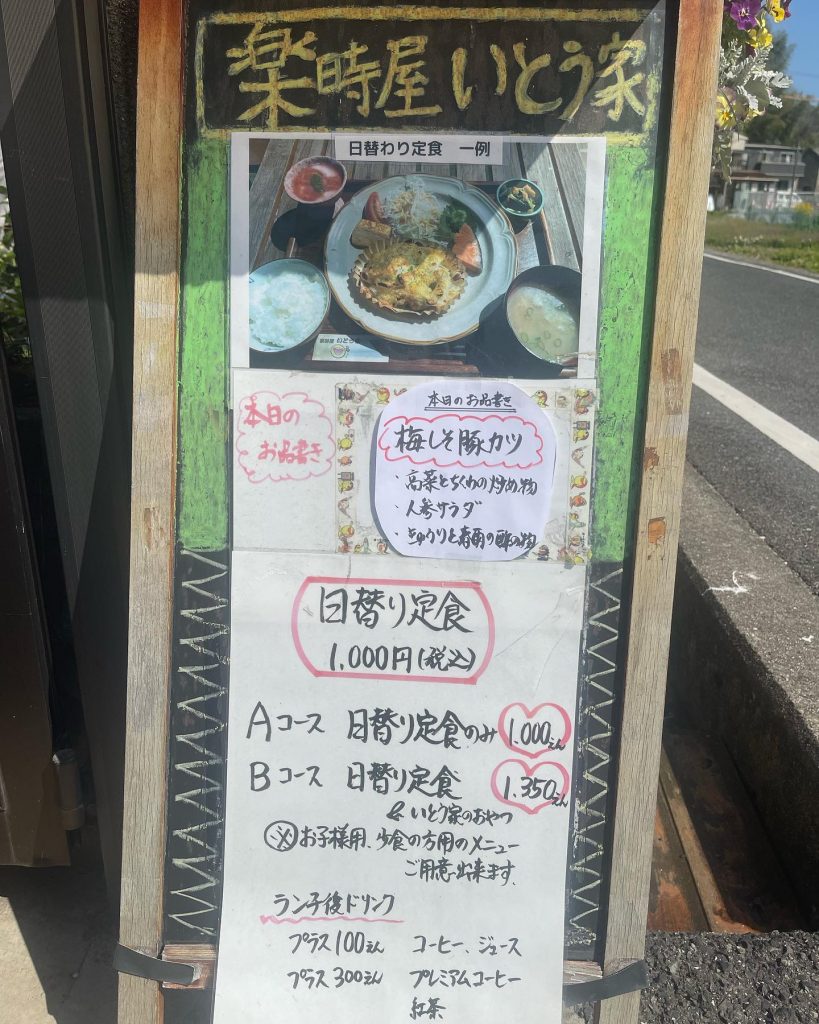 楽時屋 いとう家
日替わり定食 一例
本日の
お品書き
本日のお品書き
梅しそ豚カツ
・高菜とちくわの炒め物
・人参サラダ
・きゅうりと春雨の酢の物
日替り定食
1,000円(税込)
Aコース 日替り定食のみ 1.000えん
Bコース 日替り定食 1.350えん
& いとう家のおやつ
※お子様用、少食の方用のメニュー
ご用意出来ます。
ランチ後ドリンク
プラス100えん コーヒー、ジュース
プラス300えん プレミアムコーヒー
紅茶